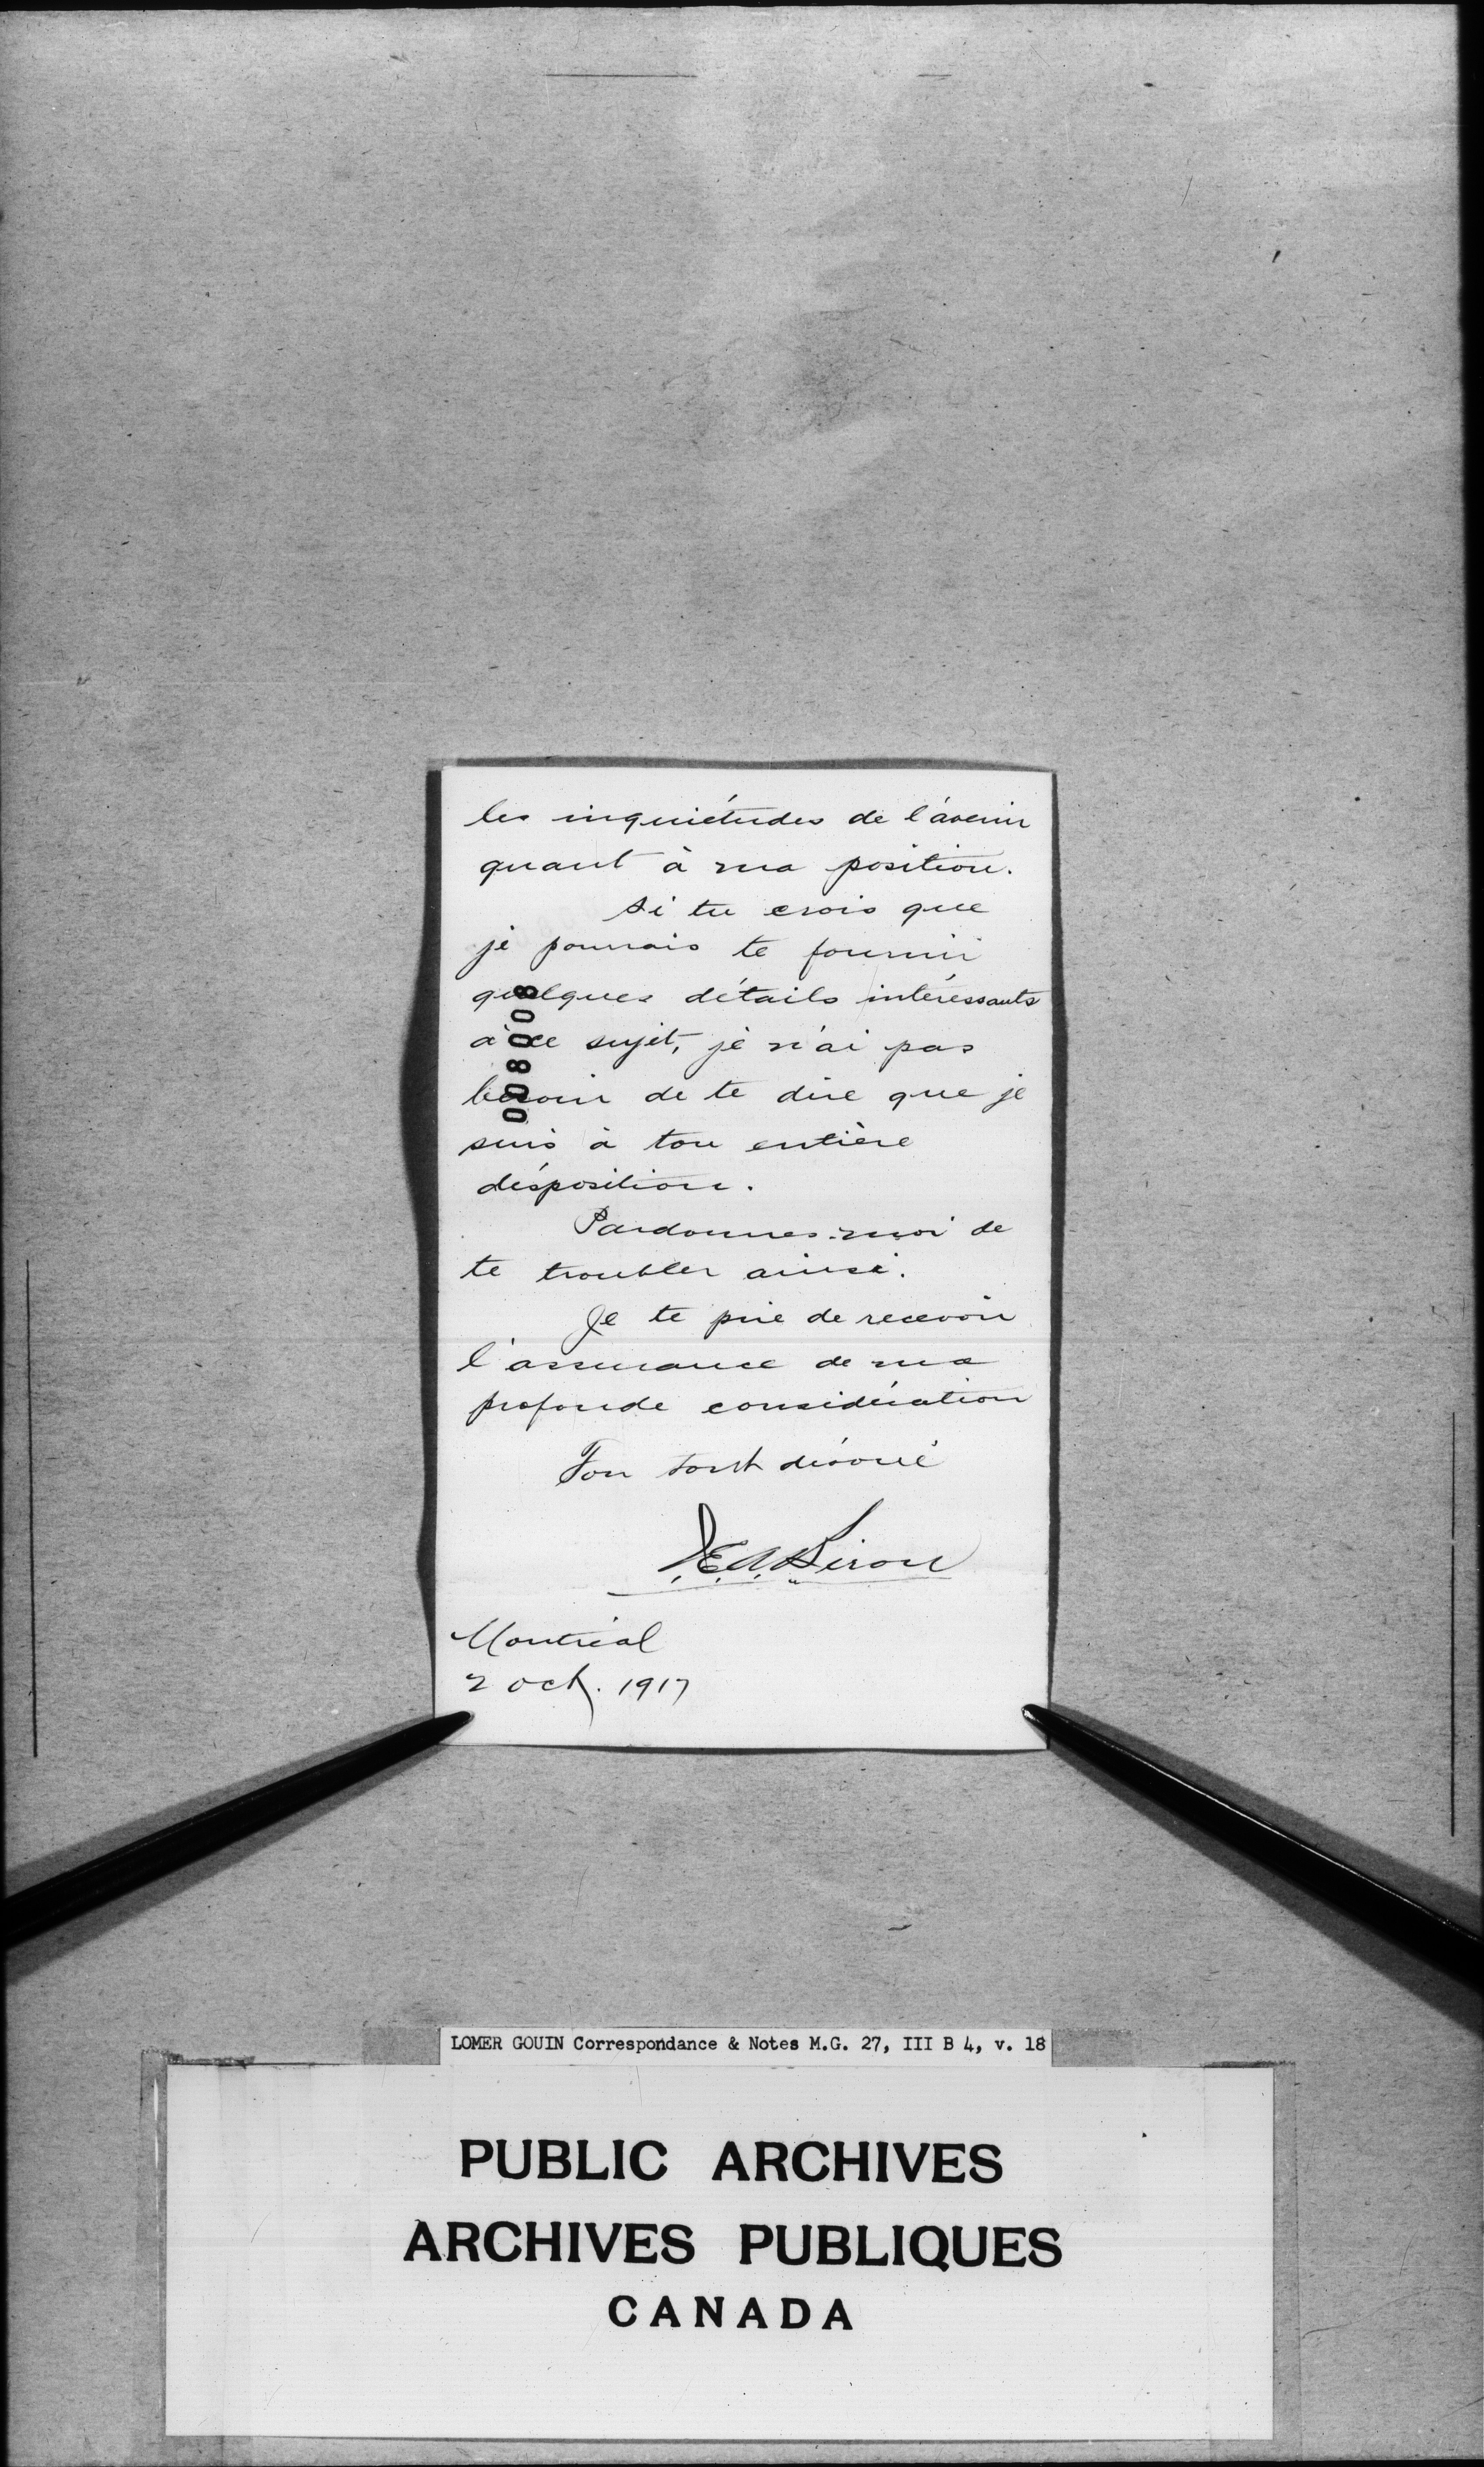 les inquiétudes de l'avenir
quant à ma position.
Si tu crois que
je pourrais te fournir
quelques détails intéressants
à ce sujet, je n'ai pas
besoin de te dire que je
suis à ton entière
disposition.
Pardonnes-moi de
te troubler ainsi.
Je te prie de recevoir
l'assurance de ma
profonde considération
Ton tout dévoué
Montréal
2 oct. 1917
008008
LOMER GOUIN Correspondance & Notes M.G. 27, III B 4, v. 18
PUBLIC ARCHIVES
ARCHIVES PUBLIQUES
CANADA